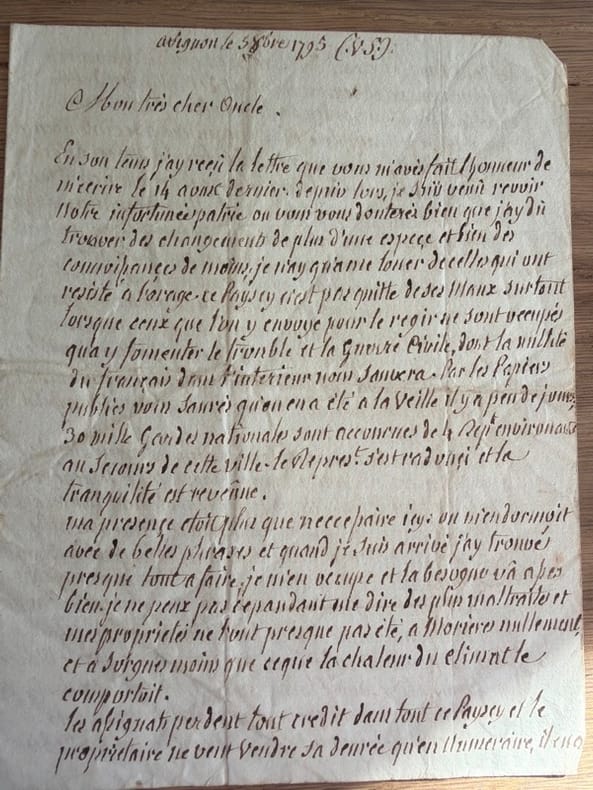 avignon le 5 8bre 1795 (:V S:)
Mon très cher Oncle.
En son tems j'ay reçû la lettre que vous m'avés fait lhonneur de
m'ecrire le 14 aoust dernier. depuis lors, je suis venû revoir
Notre infortunée patrie ou vous vous douterés bien que j'ay dû
trouver des changements de plus d'une espece et bien des
connoissances de moins, je n'ay qu'a me louer de celles qui ont
resisté a l'orage. ce Paysey n'est pas quitte de ses Maux surtout
lorsque ceux que l'on y envoye pour le regir ne sont occupés
qu'a y fomenter le trouble et la Guerre Civile, dont la nullité
du français dans l'interieur nous sauvera. Par les Papiers
publics vous saurés qu'on en a été a la veille il y a peu de jours,
30 mille Gardes nationales sont accourues de 4 Depts environants
au secours de cette ville. le Represt. s'est radouçi et la
tranquilité est revenûe.
ma presence etoit plus que neccessaire icy: on m'endormoit
avec de belles phrases et quand je suis arrivé j'ay trouvé
presque tout a faire, je m'en occupe et la besogne và assés
bien. je ne peux pas cependant me dire des plus maltraité et
mes proprietés ne l'ont presque pas été, a Morières nullement,
et à Sorgues moins que ce que la chaleur du climat le
comportoit.
les assignats perdent tout credit dans tout ce Paysey et le
proprietaire ne veut vendre sa denrée qu'en Numeraire, il en a